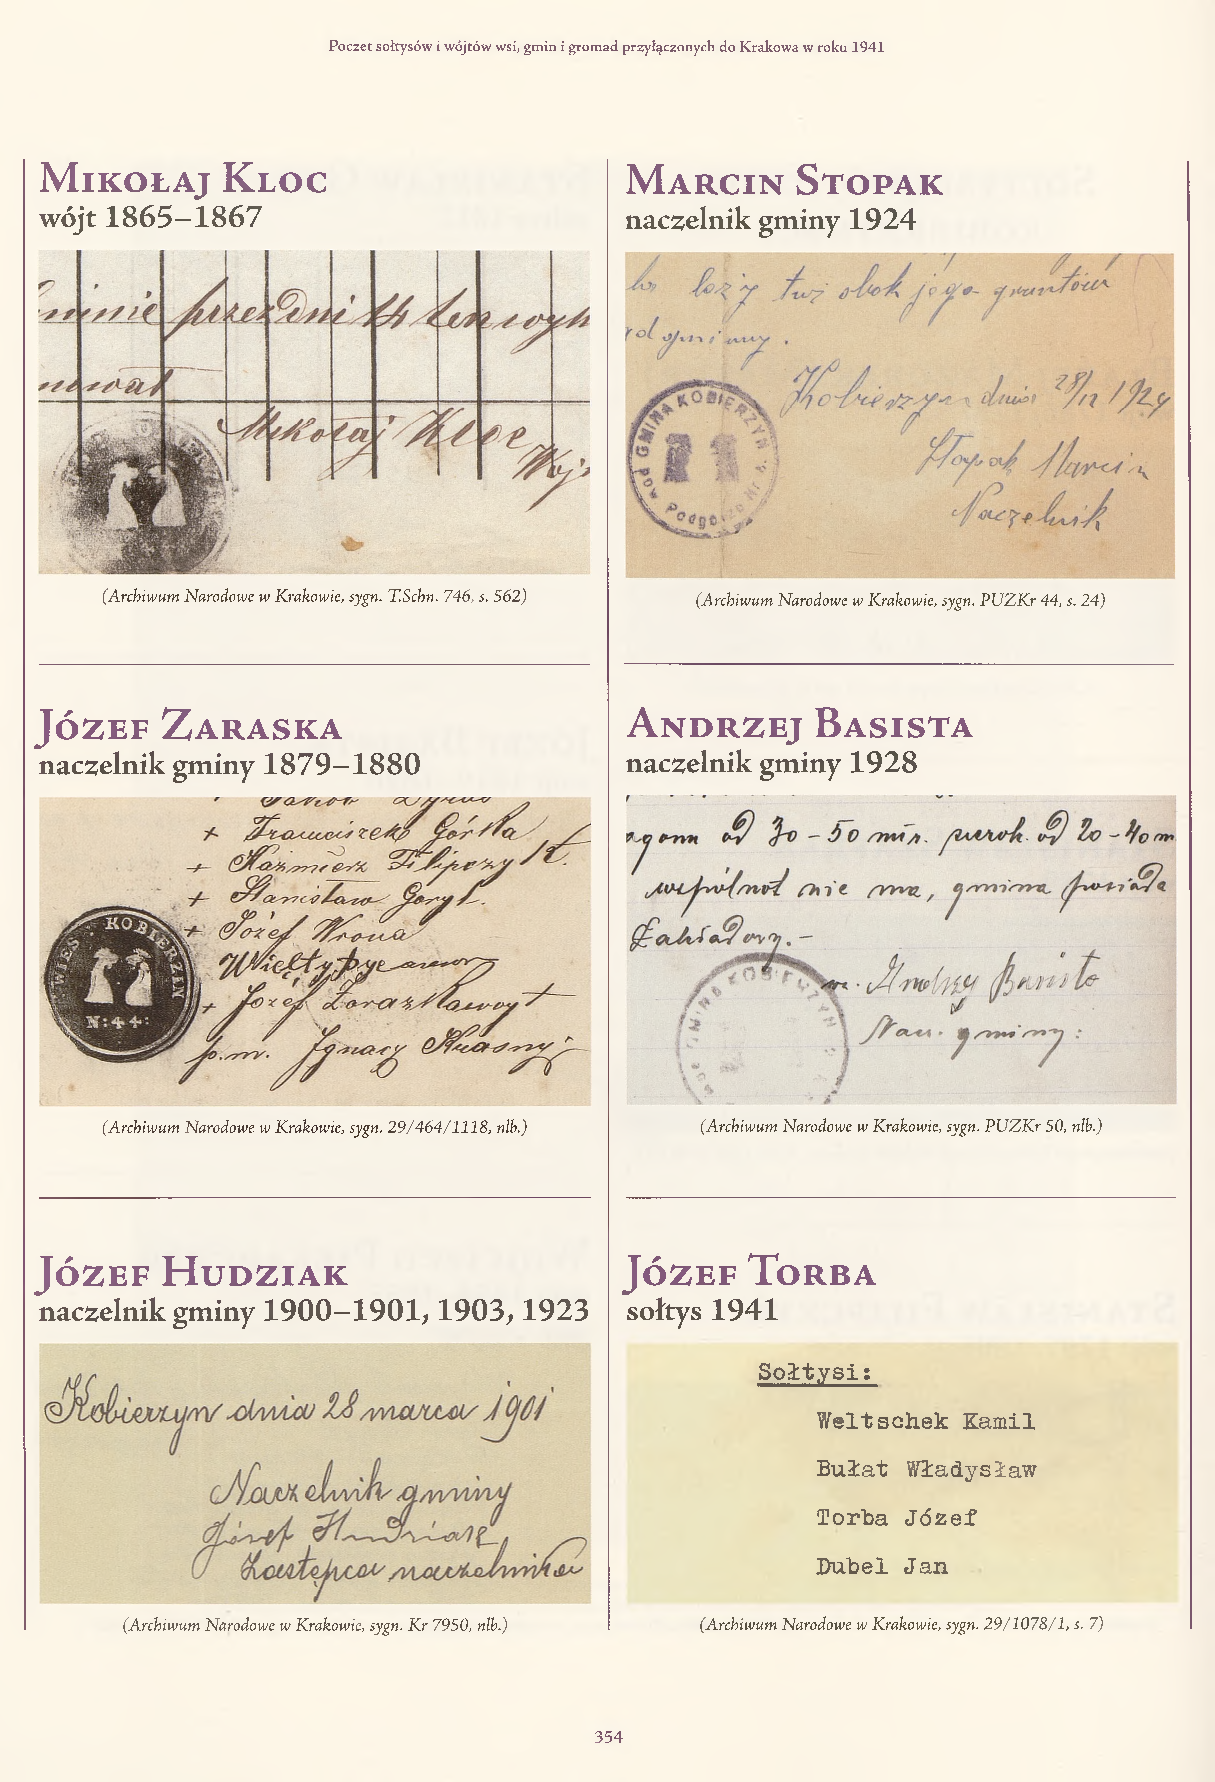 Poczet sołtysów i wójtów wsi, gmin i gromad przyłączonych do Krakowa w roku 1941
Mikołaj Kloc
wójt 1865–1867
gminie przez dni 14 ten wyk
Mikołaj Kloc
Wój
(Archiwum Narodowe w Krakowie, sygn. T.Schn. 746, s. 562)
Józef Zaraska
naczelnik gminy 1879–1880
+ Franciszek Górka
+ Kaźmierz Filipczyk
+ Stanisław Goryl.
+ Józef Wrona
WIEŚ: KOBIERZIN
N:44:
+ Józef Zaraska woyt
p.m. Ignacy Krasny
(Archiwum Narodowe w Krakowie, sygn. 29/464/1118, nlb.)
Józef Hudziak
naczelnik gminy 1900–1901, 1903, 1923
Kobierzyn dnia 28 marca 1901
Naczelnik gminy
Józef Hudziak
Zastępca naczelnika
(Archiwum Narodowe w Krakowie, sygn. Kr 7950, nlb.)
Marcin Stopak
naczelnik gminy 1924
leży tuż obok jego gruntów
od gminy.
GMINA KOBIERZYN
pow Podgórze
Kobierzyn dnia 28/12 1924
Stopak Marcin
Naczelnik
(Archiwum Narodowe w Krakowie, sygn. PUZKr 44, s. 24)
Andrzej Basista
naczelnik gminy 1928
od 30-50 mtr. szerok. od 20-40 m
wspólnot nie ma, gmina posiada
GMINA KOBIERZYN
Andrzej Basista
Nacz. gminy:
(Archiwum Narodowe w Krakowie, sygn. PUZKr 50, nlb.)
Józef Torba
sołtys 1941
Sołtysi:
Weltschek Kamil
Bułat Władysław
Torba Józef
Dubel Jan
(Archiwum Narodowe w Krakowie, sygn. 29/1078/1, s. 7)
354